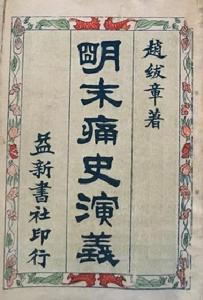 趙紱章著
明末痛史演義
益新書社印行